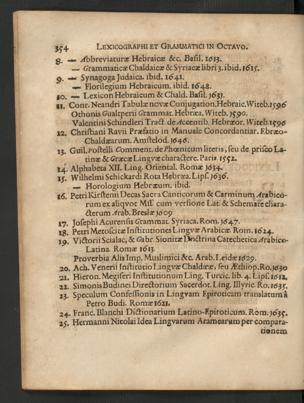 354 LEXICOGRAPHI ET GRAMMATICI IN OCTAVO.
8. — Abbreviaturæ Hebraicæ &c. Basil. 1613.
— Grammaticæ Chaldaicæ & Syriacæ libri 3. ibid. 1615.
9. — Synagoga Judaica. ibid. 1641.
— Florilegium Hebraicum. ibid. 1648.
10. — Lexicon Hebraicum & Chald. Basil. 1631.
11. Conr. Neandri Tabulæ novæ Conjugation. Hebraic. Witeb. 1596
Othonis Gualperii Grammat. Hebræa. Witeb. 1590.
Valentini Schindleri Tract. de Accentib. Hebræor. Witeb. 1596
12. Christiani Ravii Præfatio in Manuale Concordantiar. Ebræo-
Chaldæarum. Amstelod. 1646.
13. Guil. Postelli Comment. de Phœnicum literis, seu de prisco La-
tinæ & Græcæ Linguæ charactere. Paris 1552.
14. Alphabeta XII. Ling. Oriental. Romæ 1634.
15. Wilhelmi Schickardi Rota Hebræa. Lips. 1636.
— Horologium Hebræum. ibid.
16. Petri Kirstenii Decas Sacra Canticorum & Carminum Arabico-
rum ex aliquot MSS. cum versione Lat. & Schemate chara-
cterum Arab. Breslæ 1609
17. Josephi Acurensis Grammat. Syriaca. Rom. 1647.
18. Petri Metoscitæ Institutiones Linguæ Arabicæ. Rom. 1624.
19. Victorii Scialac, & Gabr. Sionitæ Doctrina Catechetica Arabico-
Latina. Romæ 1613.
Proverbia Alis Imp. Muslimici &c. Arab. Leidæ 1629.
20. Ach. Venerii Institutio Linguæ Chaldææ, seu Æthiop. Ro. 1630
21. Hieron. Megiseri Institutionum Ling. Turcic. lib. 4. Lips. 1612.
22. Simonis Budinei Directorium Sacerdot. Ling. Illyric. Ro. 1635.
23. Speculum Confessionis in Linguam Epiroticam translatum à
Petro Budi. Romæ 1621.
24. Franc. Blanchi Dictionarium Latino-Epiroticum. Rom. 1635.
25. Hermanni Nicolai Idea Linguarum Aramæarum per compara-
tionem